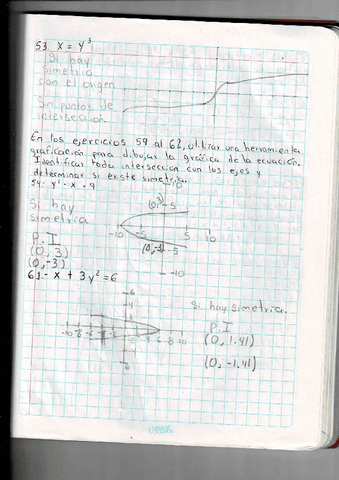 53. x = y³
Si hay
simetria
con el origen
Sin puntos de
interseccion
En los ejercicios 59 al 62, utilizar una herramienta
graficación para dibujar la gráfica de la ecuación.
Identificar toda interseccion con los ejes y
determinar si existe simetria.
59.- y² - x = 9
Si hay
simetria
P. I
(0, 3)
(0, -3)
10
5
(0, 3)
-10 -5 5 10
(0, -3)
-5
-10
61.- x + 3y² = 6
Si hay simetria.
P. I
(0, 1.41)
(0, -1.41)
6
4
-10 -8 -6 2 4 6 8 10